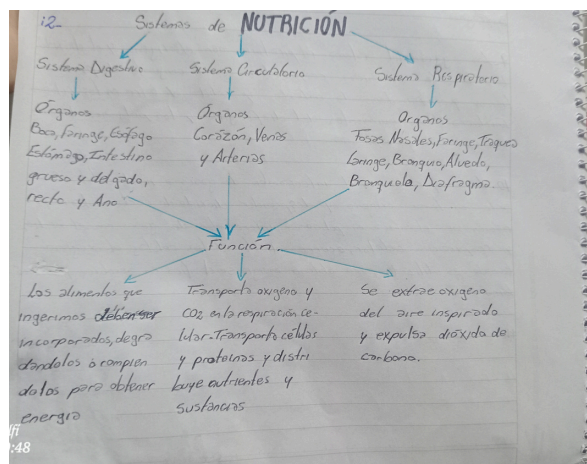 12-
Sistemas de NUTRICIÓN
Sistema Digestivo
Sistema Circulatorio
Sistema Respiratorio
Órganos
Boca, Faringe, Esófago
Estómago, Intestino
grueso y delgado,
recto y Ano
Órganos
Corazón, Venas
y Arterias
Organos
Fosas Nasales, Faringe, Traquea
Laringe, Bronquio, Alveolo,
Bronquiolo, Diafragma.
Función
Los alimentos que
ingerimos deben ser
incorporados, degra
dandolos o rompien
dolos para obtener
energía
Transporta oxigeno y
CO2 en la respiración ce-
lular-Transporta células
y proteinas y distri
buye nutrientes y
sustancias
Se extrae oxigeno
del aire inspirado
y expulsa dióxido de
carbono.
:48